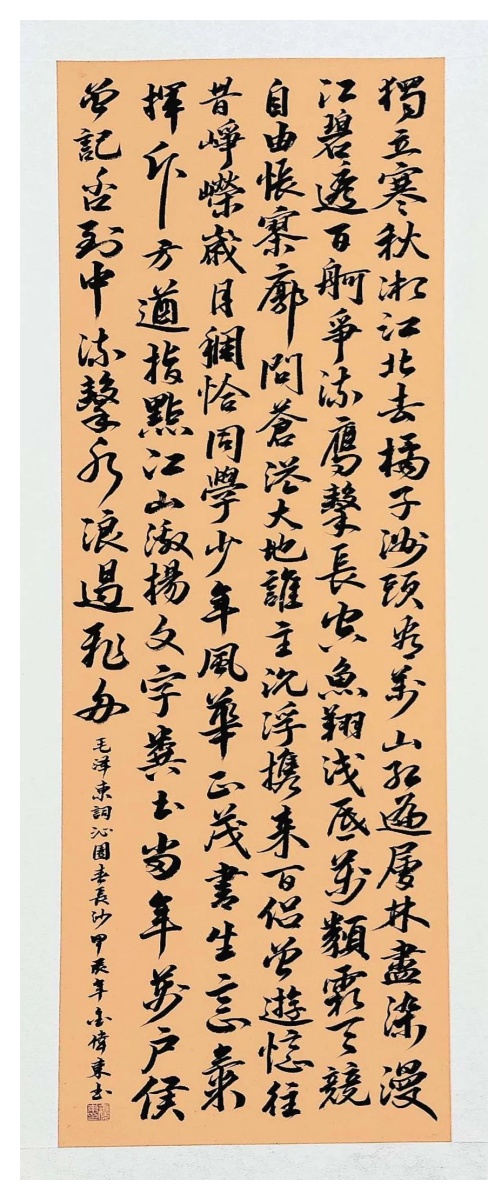 獨立寒秋湘江北去橘子洲頭看萬山紅遍層林盡染漫
江碧透百舸爭流鷹擊長空魚翔淺底萬類霜天競
自由悵寥廓問蒼茫大地誰主沉浮携來百侶曾遊憶往
昔崢嶸歲月稠恰同學少年風華正茂書生意氣
揮斥方遒指點江山激揚文字糞土當年萬戶侯
曾記否到中流擊水浪遏飛舟
毛澤東詞沁園春長沙甲辰年金偉東書